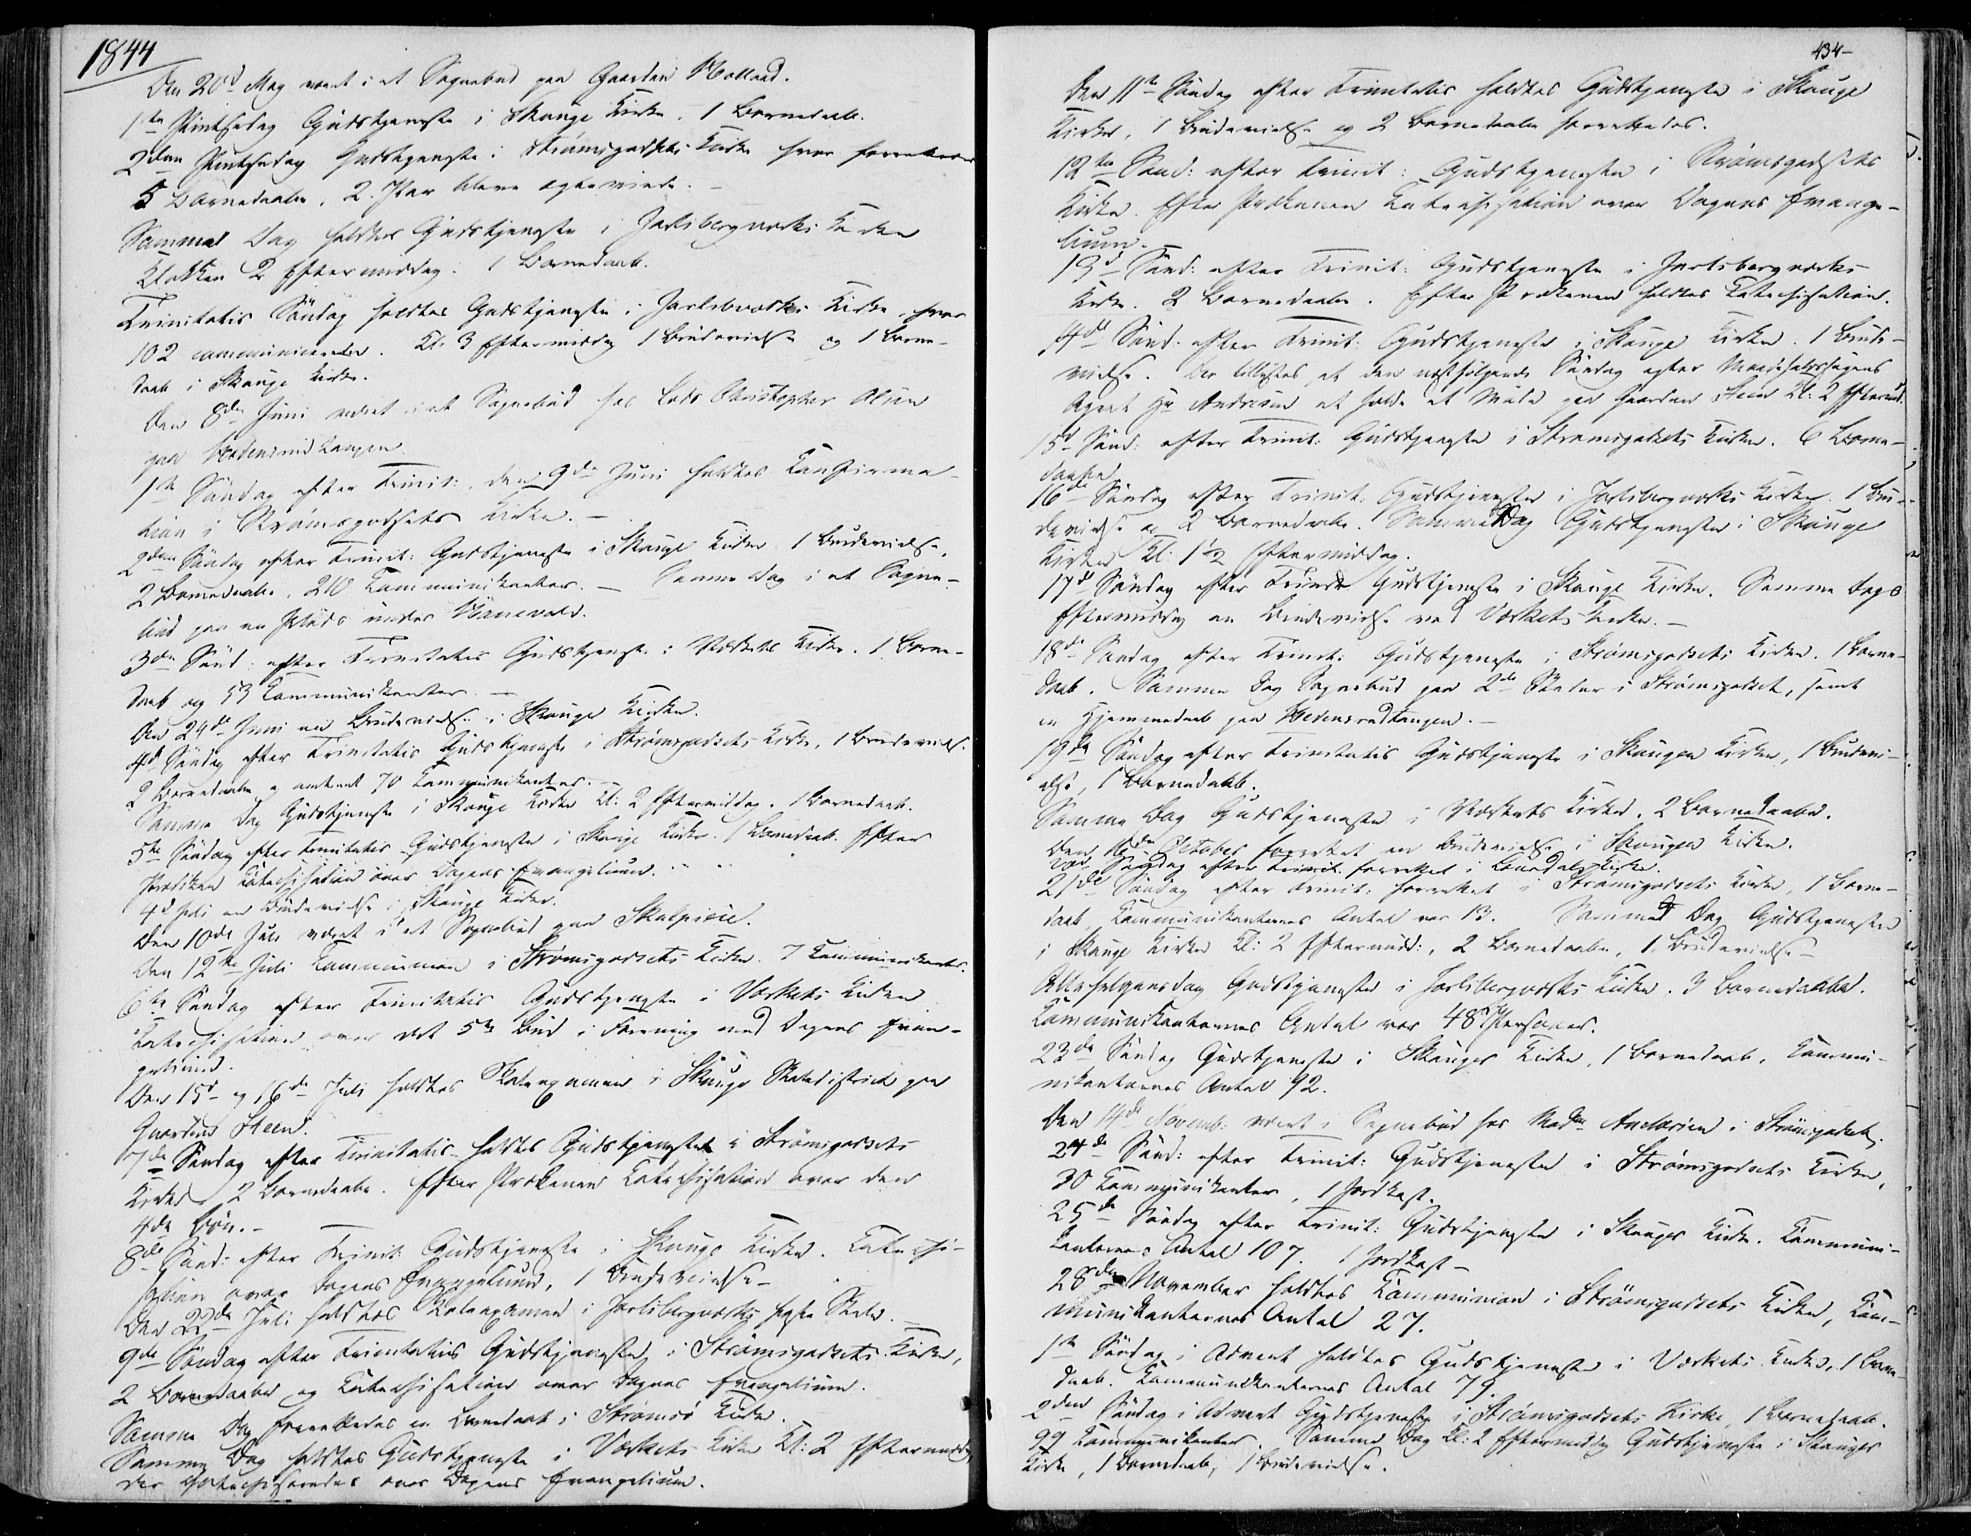 1844
Den 20d May været i et Sognebud paa Gaarden
1ste Pintsedag Gudstjeneste i Skouge Kirke. 1 Barnedaab.
2den Pintsedag Gudstjeneste i Strømsgodsets Kirke hvor forrettedes
5 Barnedaabe, 2 Par bleve egteviede. –
Samme Dag holdtes Gudstjeneste i Jarlsbergværks Kirke
Klokken 2 Eftermiddag. 1 Barnedaab.
Trinitatis Søndag holdtes Gudstjeneste i Jarlsbværks Kirke, hvor
102 communicerede. Kl: 3 Eftermiddag 1 Brudevielse og 1 Barne-
daab i Skouge Kirke.
Den 8de Juni været i et Sognebud hos Lods Christopher Olsen
paa
1ste Søndag efter Trinit: den 9de Juni holdtes Confirma-
tion i Strømsgodsets Kirke. –
2den Søndag efter Trinit: Gudstjeneste i Skouge Kirke. 1 Brudevielse,
2 Barnedaabe, 210 Communikanter. – Samme Dag i et Sogne-
bud paa en Plads under
3die Sønd: efter Trinitatis Gudstjeneste i Værkets Kirke. 1 Barne-
daab og 53 Communikanter. –
Den 24de Juni en Brudevielse i Skouge Kirke.
4d Søndag efter Trinitatis Gudstjeneste i Strømsgodsets Kirke, 1 Brudevielse
2 Barnedaabe, omtrent 70 Communikanter. –
Samme Dag Gudstjeneste i Skouge Kirke Kl: 2 Eftermiddag. 1 Barnedaab.
5te Søndag efter Trinitatis Gudstjeneste i Skouge Kirke. 1 Barnedaab. Efter
Prædiken Catechisation over Dagens Evangelium.
4d Juli en Brudevielse i Skouge Kirke.
Den 10de Juli været i et Sognebud paa
Den 12te Juli Communion i Strømsgodsets Kirke. 7 Communikanter.
6te Søndag efter Trinitatis Gudstjeneste i Værkets Kirke
Catechisation over det 5te Bud i Forening med Dagens Evan-
gelium.
Den 15d og 16de Juli holdtes Skoleexamen i Skouge Skoledistrict paa
Gaarden Steen.
7de Søndag efter Trinitatis holdtes Gudstjeneste i Strømsgodsets
Kirke 2 Barnedaabe. Efter Prædikenen Catechisation over den
4de Bøn. –
8de Sønd: efter Trinit: Gudstjeneste i Skouge Kirke. Catechi-
sation over Dagens Evangelium, 1 Brudevielse –
Den 22de Juli holdtes Skoleexamen i Jarlsbergværks faste Skole. –
9de Søndag efter Trinitatis Gudstjeneste i Strømsgodsets Kirke,
2 Barnedaabe og Catechisation over Dagens Evangelium.
Samme Dag forrettedes en Barnedaab i Strømsø Kirke.
Samme Dag holdtes Gudstjeneste i Værkets Kirke Kl: 2 Eftermiddag
der catechiseredes over Dagens Evangelium.
434–
Den 11te Søndag efter Trinitatis holdtes Gudstjeneste i Skouge
Kirke. 1 Brudevielse og 2 Barnedaabe forrettedes.
12te Sønd: efter Trinit: Gudstjeneste i Strømsgodsets
Kirke. Efter Prækenen Catechisation over Dagens Evange-
lium.
13d Sønd: efter Trinit: Gudstjeneste i Jarlsbergværks
Kirke. 2 Barnedaabe. Efter Prækenen holdtes Catechisation.
14de Sønd: efter Trinit: Gudstjeneste i Skouge Kirke. 1 Brude-
vielse. Der tillystes at den næstfølgende Søndag agter Maadeholdssagens
Agent Hr Andresen at holde et Møde paa Gaarden Steen Kl: 2 Efterm:
15d Sønd: efter Trinit: Gudstjeneste i Strømsgodsets Kirke. 6 Barne-
daabe.
16de Søndag efter Trinit: Gudstjeneste i Jarlsbergværks Kirke. 1 Bru-
devielse og 2 Barnedaabe. Samme Dag Gudstjeneste i Skouge
Kirke Kl: 1 1/2 Eftermiddag.
17d Søndag efter Trinit: Gudstjeneste i Skouge Kirke. Samme Dags
Eftermiddag en Brudevielse ved Værkets Kirke. –
18de Søndag efter Trinit: Gudstjeneste i Strømsgodsets Kirke. 1 Barne-
daab. Samme Dag Sognebud paa 2de Steder i Strømsgodset, samt
en Hjemmedaab paa Hedensrudtangen. –
19de Søndag efter Trinitatis Gudstjeneste i Skougen Kirke, 1 Brudevi-
else, 1 Barnedaab.
Samme Dag Gudstjeneste i Værkets Kirke. 2 Barnedaabe.
Den 16de October forrettet en Brudevielse i Skougen Kirke.
20d Søndag efter Trinit: forrettet i Kirke.
21de Søndag efter Trinit: forrettet i Strømsgodsets Kirke, 1 Barne-
daab, Communikanternes Antal var 13. Samme Dag Gudstjeneste
i Skouge Kirke Kl: 2 Eftermidd:, 2 Barnedaabe, 1 Brudevielse –
Allehelgensdag Gudstjeneste i Jarlsbergværks Kirke. 3 Barnedaabe.
Communikanternes Antal var 48 Personer.
23de Søndag Gudstjeneste i Skouges Kirke, 1 Barnedaab, Commu-
nikanternes Antal 92.
Den 14de Novemb: været i Sognebud hos i Strømsgodset.
24de Sønd: efter Trinit: Gudstjeneste i Strømsgodsets Kirke,
30 Communikanter, 1 Jordkast.
25de Søndag efter Trinit: Gudstjeneste i Skouges Kirke. Communi-
kanternes Antal 107. 1 Jordkast –
28de November holdtes Communion i Strømsgodsets Kirke, Com-
munikanternes Antal 27.
1ste Søndag i Advent holdtes Gudstjeneste i Værkets Kirke, 1 Barne-
daab. Communikanternes Antal 79.
2den Søndag i Advent Gudstjeneste i Strømsgodsets Kirke, 1 Barnedaab.
99 Communikanter. Samme Dag Kl: 2 Eftermiddag Gudstjeneste i Skouges
Kirke, 1 Barnedaab, 1 Brudevielse.